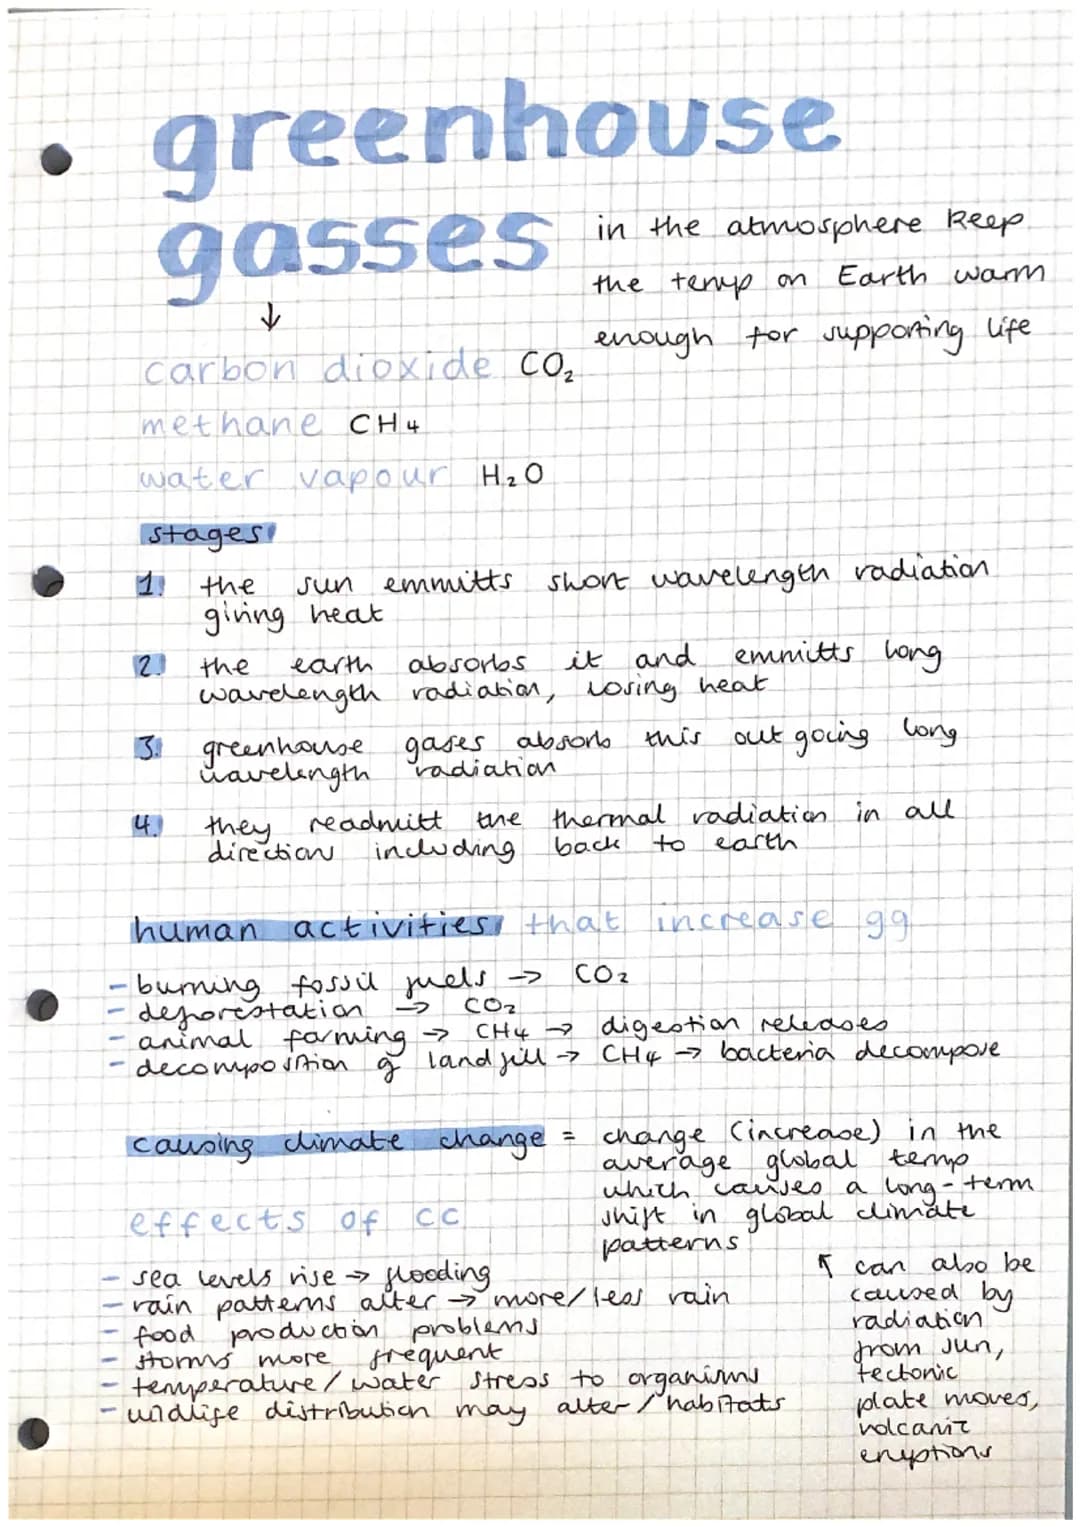 greenhouse
gasses
in the atmosphere keep
the temp on Earth warm
enough for supporting life
↓
carbon dioxide CO₂
methane CH4
water vapour H₂O
stages
1. the sun emmitts short wavelength radiation
giving heat
2. the earth absorbs it and emmitts long
wavelength radiation, losing heat
3. greenhouse gases absorb this out going long
wavelength radiation
4. they readmitt the thermal radiation in all
directions including back to earth
human activities that increase gg
- burning fossil fuels → CO₂
- deforestation → CO₂
- animal farming → CH4 → digestion releases
- decomposition of landfill → CH4 → bacteria decompose
causing climate change = change (increase) in the
average global temp
which causes a long-term
shift in global climate
patterns
effects of cc
- sea levels rise → flooding
- rain patterns alter → more/less rain
- food production problems
- storms more frequent
- temperature/water stress to organisms
- wildlife distribution may alter/habitats
↑ can also be
caused by
radiation
from sun,
tectonic
plate moves,
volcanic
eruptions